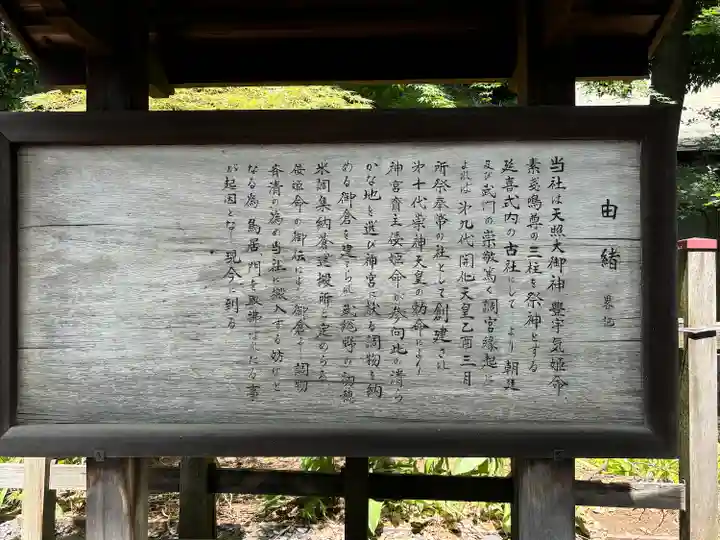 由緒 畧記
当社は天照大御神、豊宇気姫命、
素戔嗚尊の三柱を祭神とする
延喜式内の古社にして より朝廷
及び武門の崇敬篤く調宮縁起に
よれば第九代開化天皇乙酉三月
所祭奉幣の社として創建され
第十代崇神天皇の勅命により
神宮斎主倭姫命が参向此の清ら
かな地を選び神宮に献る調物を納
める御倉を建てられ武総野の初穂
米調集納蔵運搬所と定めらる
倭姫命の御伝により御倉より調物
斉清の為め当社に搬入する妨げと
なる為鳥居、門を取拂はれたる事
が起因となり現今に到る